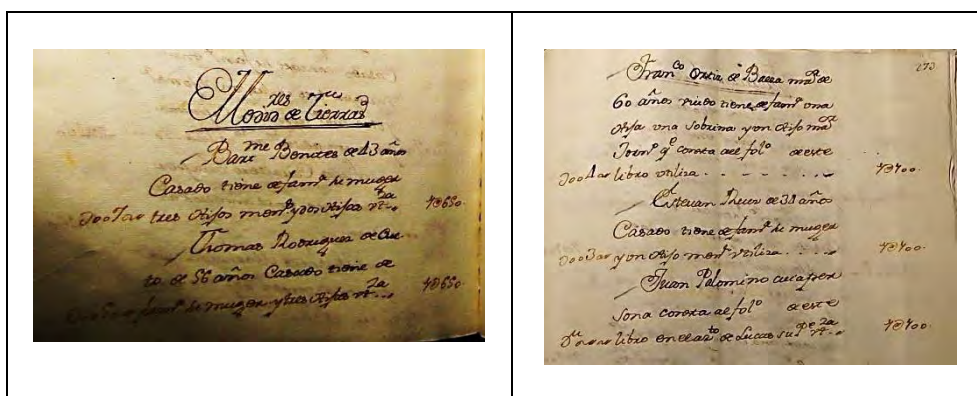 Medidres de Tierras
Barme Benites de 43 años
Casado tiene de famª su muger
tres Hijos menˢ y dos Hijas vtᶻᵃ 1@650
Thomas Rodriguez de Cue
to de 56 años Casado tiene de
famª su muger y tres Hijos vtᶻᵃ 1@650
273
Franco Ortiz de Baeza mʳ de
60 años viudo tiene de famª una
Hija una sobrina y on Hijo mʳ
Jornˡ qe consta al folº de este
libro vtiliza 1@400
Estevan de 38 años
Casado tiene de famª su muger
y on Hijo menʳ vtiliza 1@400
Juan Palomino cuia per
sona consta al folº de este
libro en el arto de Lucas su 1@400